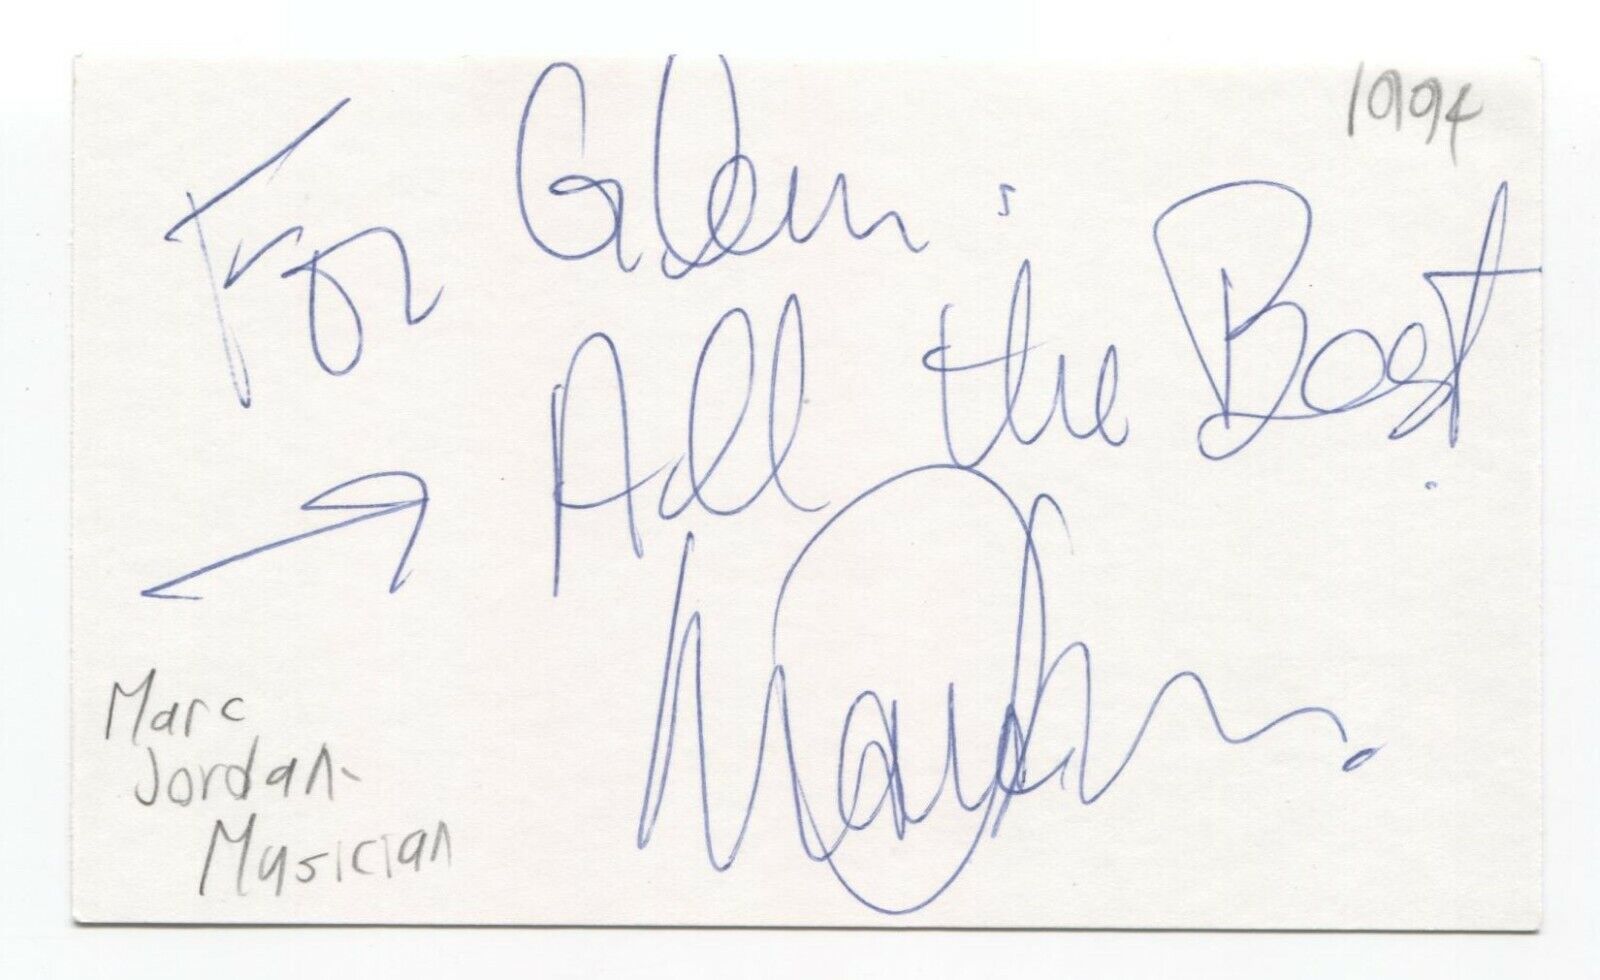 1994
For Glenn:
All the Best.
Marc
Jordan-
Musician